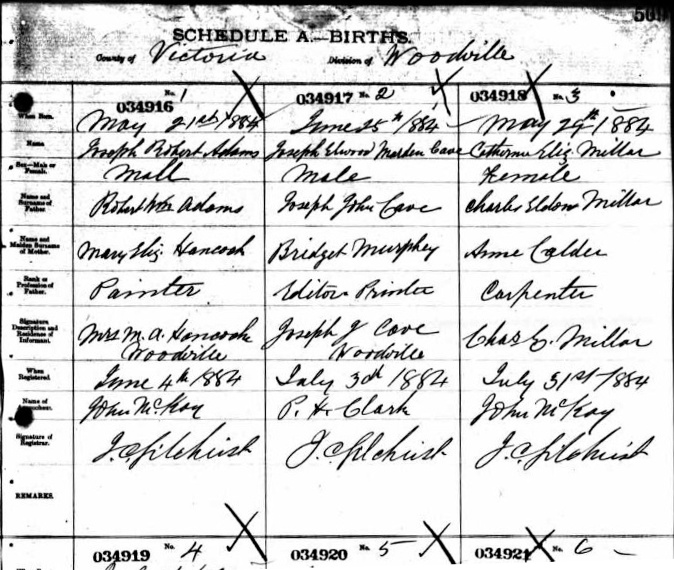 SCHEDULE A.—BIRTHS.
County of Victoria Division of Woodville
034916 No. 1 034917 No. 2 034918 No. 3
When Born. May 21st 1884 June 25th 1884 May 29th 1884
Name Joseph Robert Adams Joseph Elwood Marden Cave Catherine Eliz Millar
Sex—Male or Female. Male Male Female
Name and Surname of Father. Robert Wm Adams Joseph John Cave Charles Eldon Millar
Name and Maiden Surname of Mother. Mary Eliz. Hancock Bridget Murphey Anne Calder
Rank or Profession of Father. Painter Editor Printer Carpenter
Signature Description and Residence of Informant. Mrs M. A. Hancock Joseph J Cave Chas E. Millar
Woodville Woodville
When Registered. June 4th 1884 July 3d 1884 July 31st 1884
Name of John McKay P. H. Clark John McKay
Signature of Registrar. J. C. Gilchrist J. C. Gilchrist J. C. Gilchrist
REMARKS.
034919 No. 4 034920 No. 5 034921 No. 6